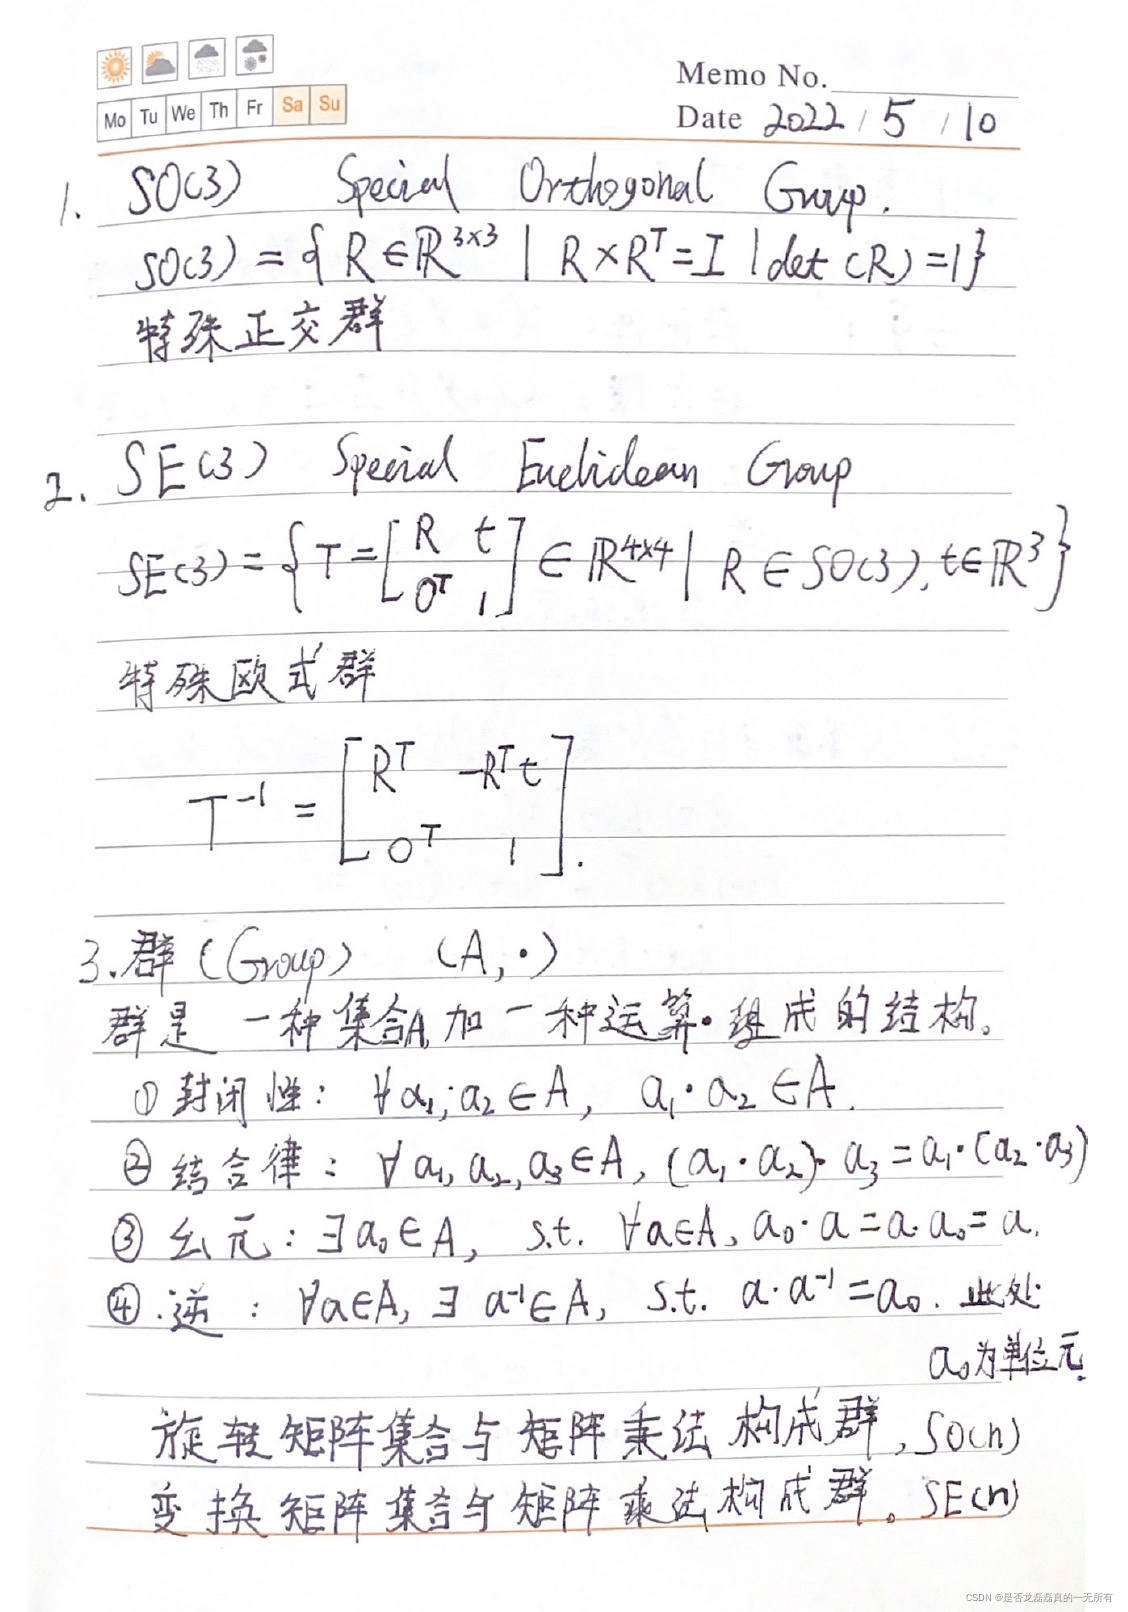 Memo No.
Mo Tu We Th Fr Sa Su
Date 2022 / 5 / 10
1. SO(3) Special Orthogonal Group.
SO(3) = { R ∈ ℝ^{3×3} | R×R^T = I | det(R) = 1 }
特殊正交群
2. SE(3) Special Euclidean Group
SE(3) = { T = [ R t ; 0^T 1 ] ∈ ℝ^{4×4} | R ∈ SO(3), t ∈ ℝ^3 }
特殊欧式群
T^{-1} = [ R^T -R^T t ; 0^T 1 ].
3. 群 (Group) (A, ·)
群是 一种集合A 加 一种运算· 组成的结构。
① 封闭性: ∀a₁, a₂ ∈ A, a₁·a₂ ∈ A.
② 结合律: ∀a₁, a₂, a₃ ∈ A, (a₁·a₂)·a₃ = a₁·(a₂·a₃)
③ 幺元: ∃a₀ ∈ A, s.t. ∀a ∈ A, a₀·a = a·a₀ = a.
④. 逆: ∀a ∈ A, ∃ a^{-1} ∈ A, s.t. a·a^{-1} = a₀. 此处
a₀为单位元.
旋转矩阵集合与矩阵乘法构成群, SO(n)
变换矩阵集合与矩阵乘法构成群。SE(n)
CSDN @是否龙磊磊真的一无所有